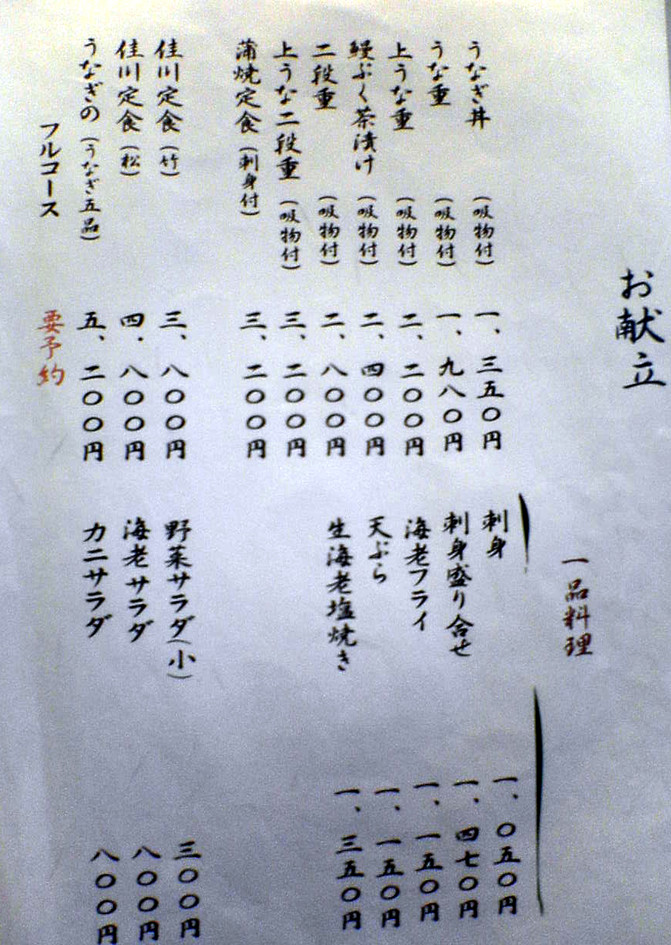 お献立
うなぎ丼 (吸物付) 一、三五〇円
うな重 (吸物付) 一、九八〇円
上うな重 (吸物付) 二、二〇〇円
鰻ぶく茶漬け (吸物付) 二、四〇〇円
二段重 (吸物付) 二、八〇〇円
上うな二段重 (吸物付) 三、二〇〇円
蒲焼定食 (刺身付) 三、二〇〇円
佳川定食 (竹) 三、八〇〇円
佳川定食 (松) 四、八〇〇円
うなぎの (うなぎ五品) 五、二〇〇円
フルコース 要予約
一品料理
刺身 一、〇五〇円
刺身盛り合せ 一、四七〇円
海老フライ 一、一五〇円
天ぷら 一、一五〇円
生海老塩焼き 一、三五〇円
野菜サラダ(小) 三〇〇円
海老サラダ 八〇〇円
カニサラダ 八〇〇円